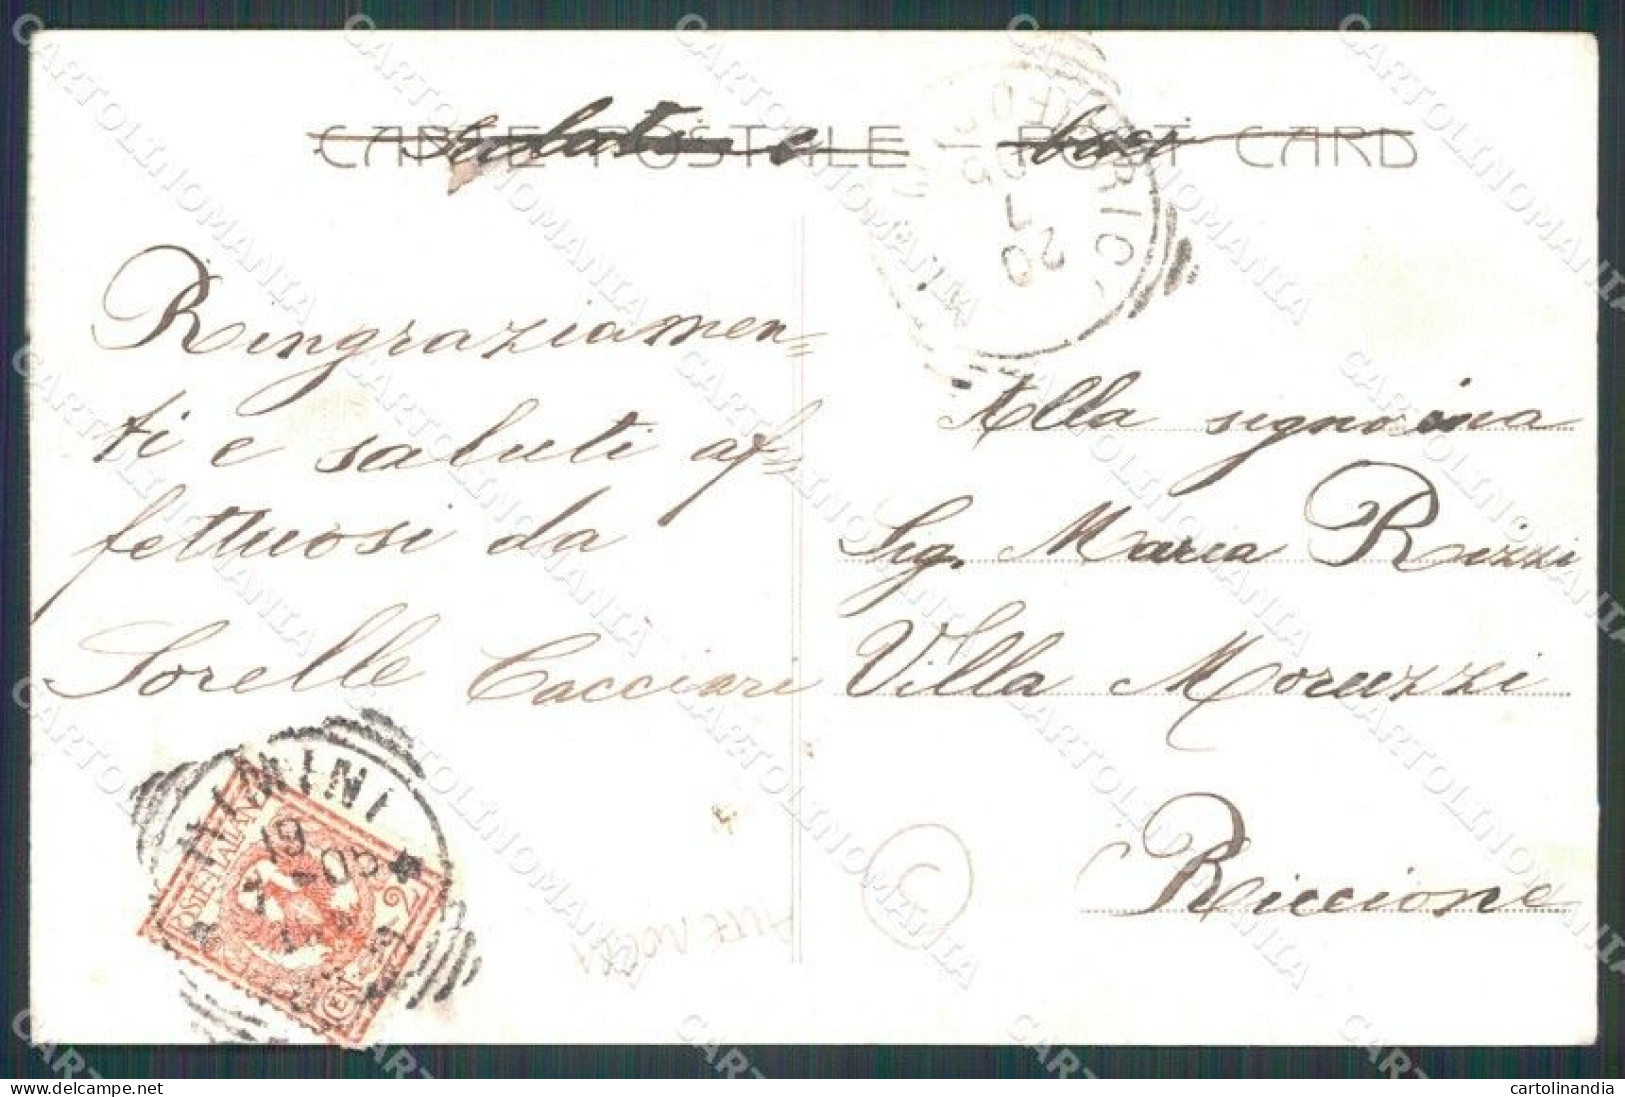 CARTE POSTALE POST CARD
baci
Ringraziamen=
ti e saluti af=
fettuosi da
Sorelle Cacciari
Alla signorina
Sig. Maria Rizzi
Villa Moruzzi
Riccione
RIMINI
19
05
POSTE ITALIANE
2
CEN
20
7
05
C
ALTE NOCI
CARTOLINOMANIA
cartolinandia